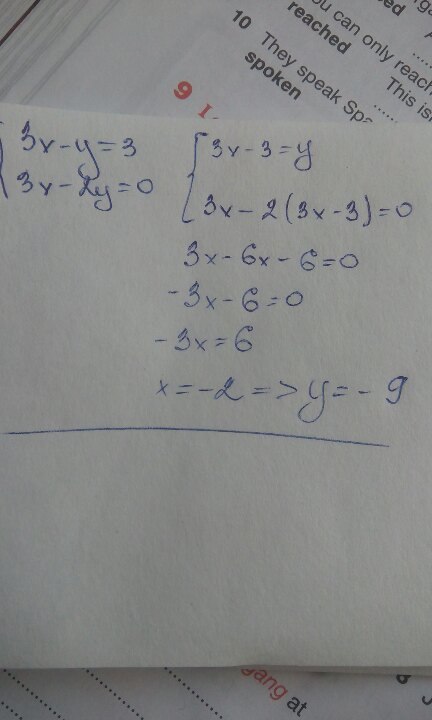 ou can only reach
reached
10 They speak Spa
spoken
This isn
9 I
3x-y=3
3x-2y=0
3x-3=y
3x-2(3x-3)=0
3x-6x-6=0
-3x-6=0
-3x=6
x=-2=>y=-9
gang at